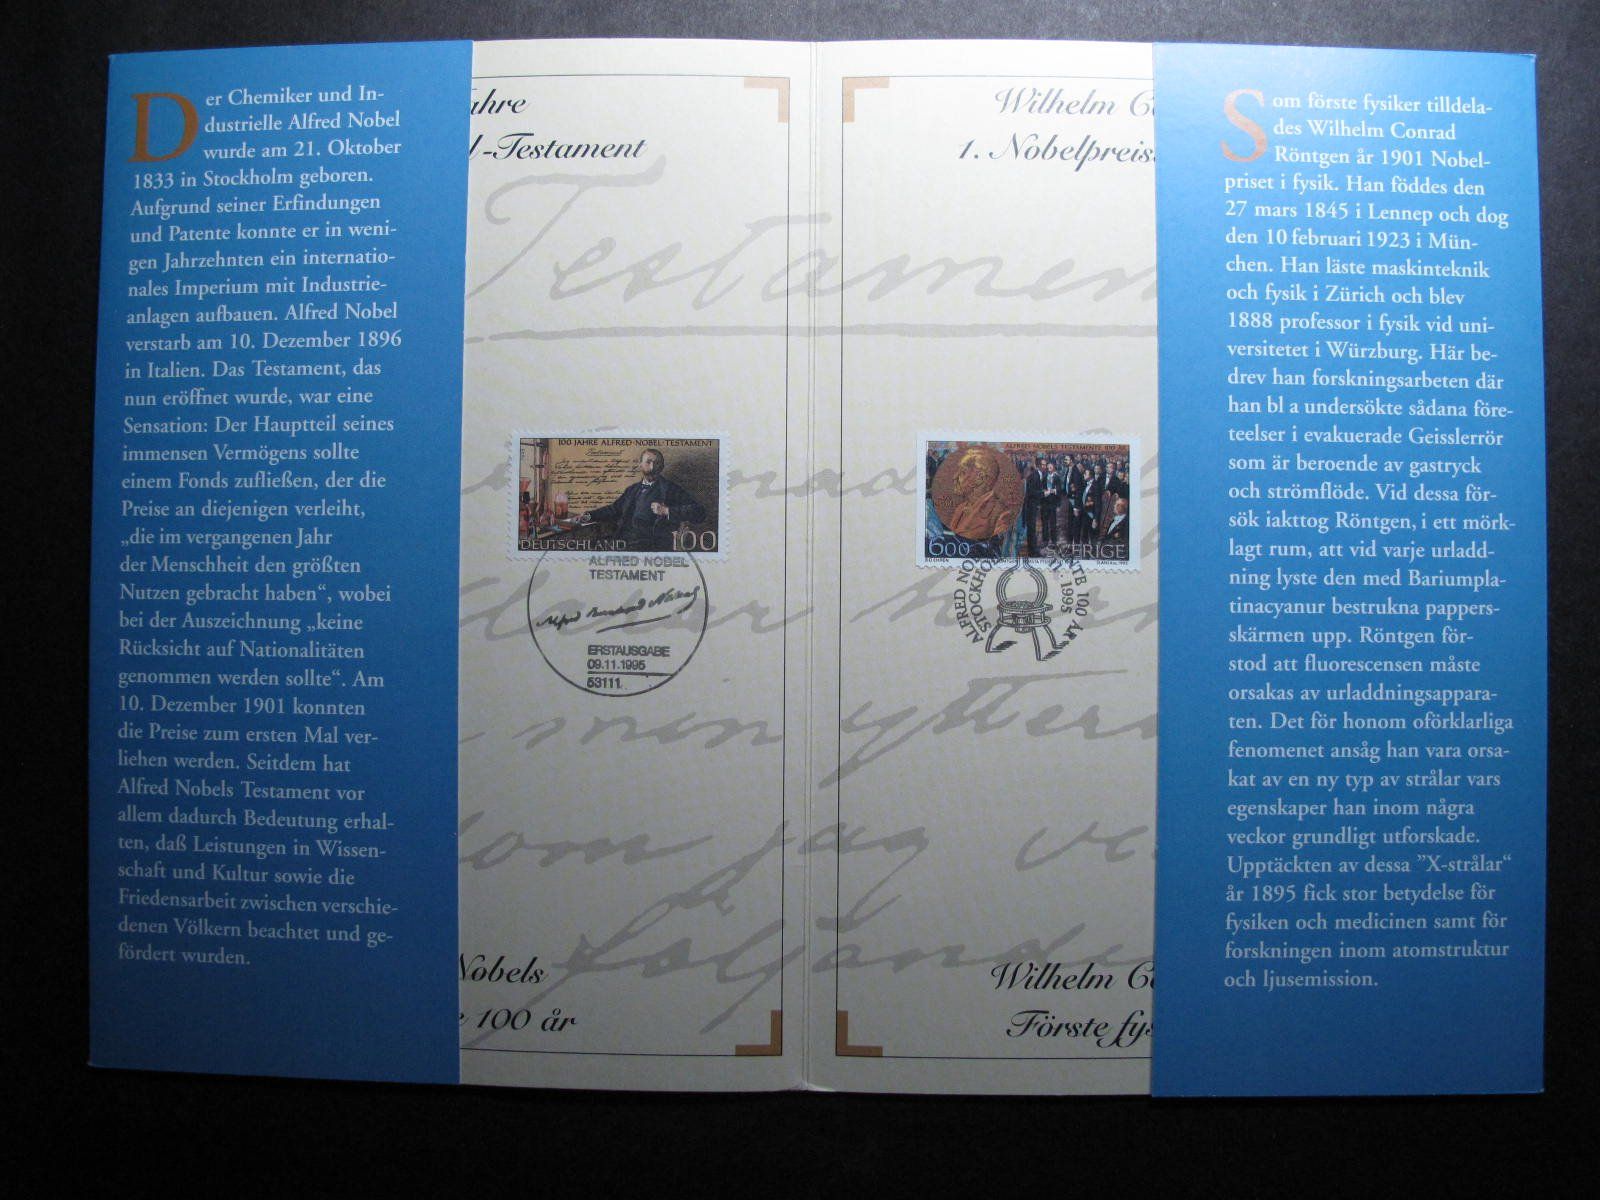 Der Chemiker und In-
dustrielle Alfred Nobel
wurde am 21. Oktober
1833 in Stockholm geboren.
Aufgrund seiner Erfindungen
und Patente konnte er in weni-
gen Jahrzehnten ein internatio-
nales Imperium mit Industrie-
anlagen aufbauen. Alfred Nobel
verstarb am 10. Dezember 1896
in Italien. Das Testament, das
nun eröffnet wurde, war eine
Sensation: Der Hauptteil seines
immensen Vermögens sollte
einem Fonds zufließen, der die
Preise an diejenigen verleiht,
„die im vergangenen Jahr
der Menschheit den größten
Nutzen gebracht haben“, wobei
bei der Auszeichnung „keine
Rücksicht auf Nationalitäten
genommen werden sollte“. Am
10. Dezember 1901 konnten
die Preise zum ersten Mal ver-
liehen werden. Seitdem hat
Alfred Nobels Testament vor
allem dadurch Bedeutung erhal-
ten, daß Leistungen in Wissen-
schaft und Kultur sowie die
Friedensarbeit zwischen verschie-
denen Völkern beachtet und ge-
fördert wurden.
ahre
l-Testament
Testamen
100 JAHRE ALFRED-NOBEL-TESTAMENT
Testament
DEUTSCHLAND 100
ALFRED NOBEL
TESTAMENT
Alfred Bernhard Nobel
ERSTAUSGABE
09.11.1995
53111
men yttera
som jag ve
följande
Nobels
e 100 år
Wilhelm C
1. Nobelpreis
ALFRED NOBELS TESTAMENTE 100 ÅR
600 SVERIGE
STOCKHOL
1995
ALFRED NO
NTE 100 ÅR
Wilhelm C
Förste fys
Som förste fysiker tilldela-
des Wilhelm Conrad
Röntgen år 1901 Nobel-
priset i fysik. Han föddes den
27 mars 1845 i Lennep och dog
den 10 februari 1923 i Mün-
chen. Han läste maskinteknik
och fysik i Zürich och blev
1888 professor i fysik vid uni-
versitetet i Würzburg. Här be-
drev han forskningsarbeten där
han bl a undersökte sådana före-
teelser i evakuerade Geisslerrör
som är beroende av gastryck
och strömflöde. Vid dessa för-
sök iakttog Röntgen, i ett mörk-
lagt rum, att vid varje urladd-
ning lyste den med Bariumpla-
tinacyanur bestrukna pappers-
skärmen upp. Röntgen för-
stod att fluorescensen måste
orsakas av urladdningsappara-
ten. Det för honom oförklarliga
fenomenet ansåg han vara orsa-
kat av en ny typ av strålar vars
egenskaper han inom några
veckor grundligt utforskade.
Upptäckten av dessa ”X-strålar“
år 1895 fick stor betydelse för
fysiken och medicinen samt för
forskningen inom atomstruktur
och ljusemission.